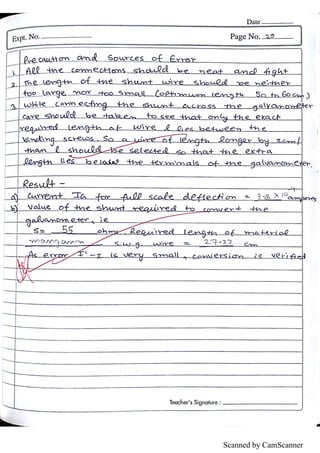 Date
Expt. No.
Page No. 29
Precaution and Sources of Error
1. All the connections should be neat and tight
2. The length of the shunt wire should be neither
too large nor too small (optimum length 50 to 60 cm)
3. While connecting the shunt across the galvanometer
care should be taken to see that only the exact
required length of wire l lies between the
binding screws. So a wire of length longer by 2cm
than l should be selected so that the extra
length lies below the terminals of the galvanometer.
Result -
a) Current Ig for full scale deflection = 3.8 × 10⁻⁴ ampere
b) Value of the shunt required to convert the
galvanometer, ie
S = 55 ohms Required length of material
manganin s.w.g wire = 27.22 cm
As error I' - I is very small, conversion is verified
Teacher's Signature :
Scanned by CamScanner